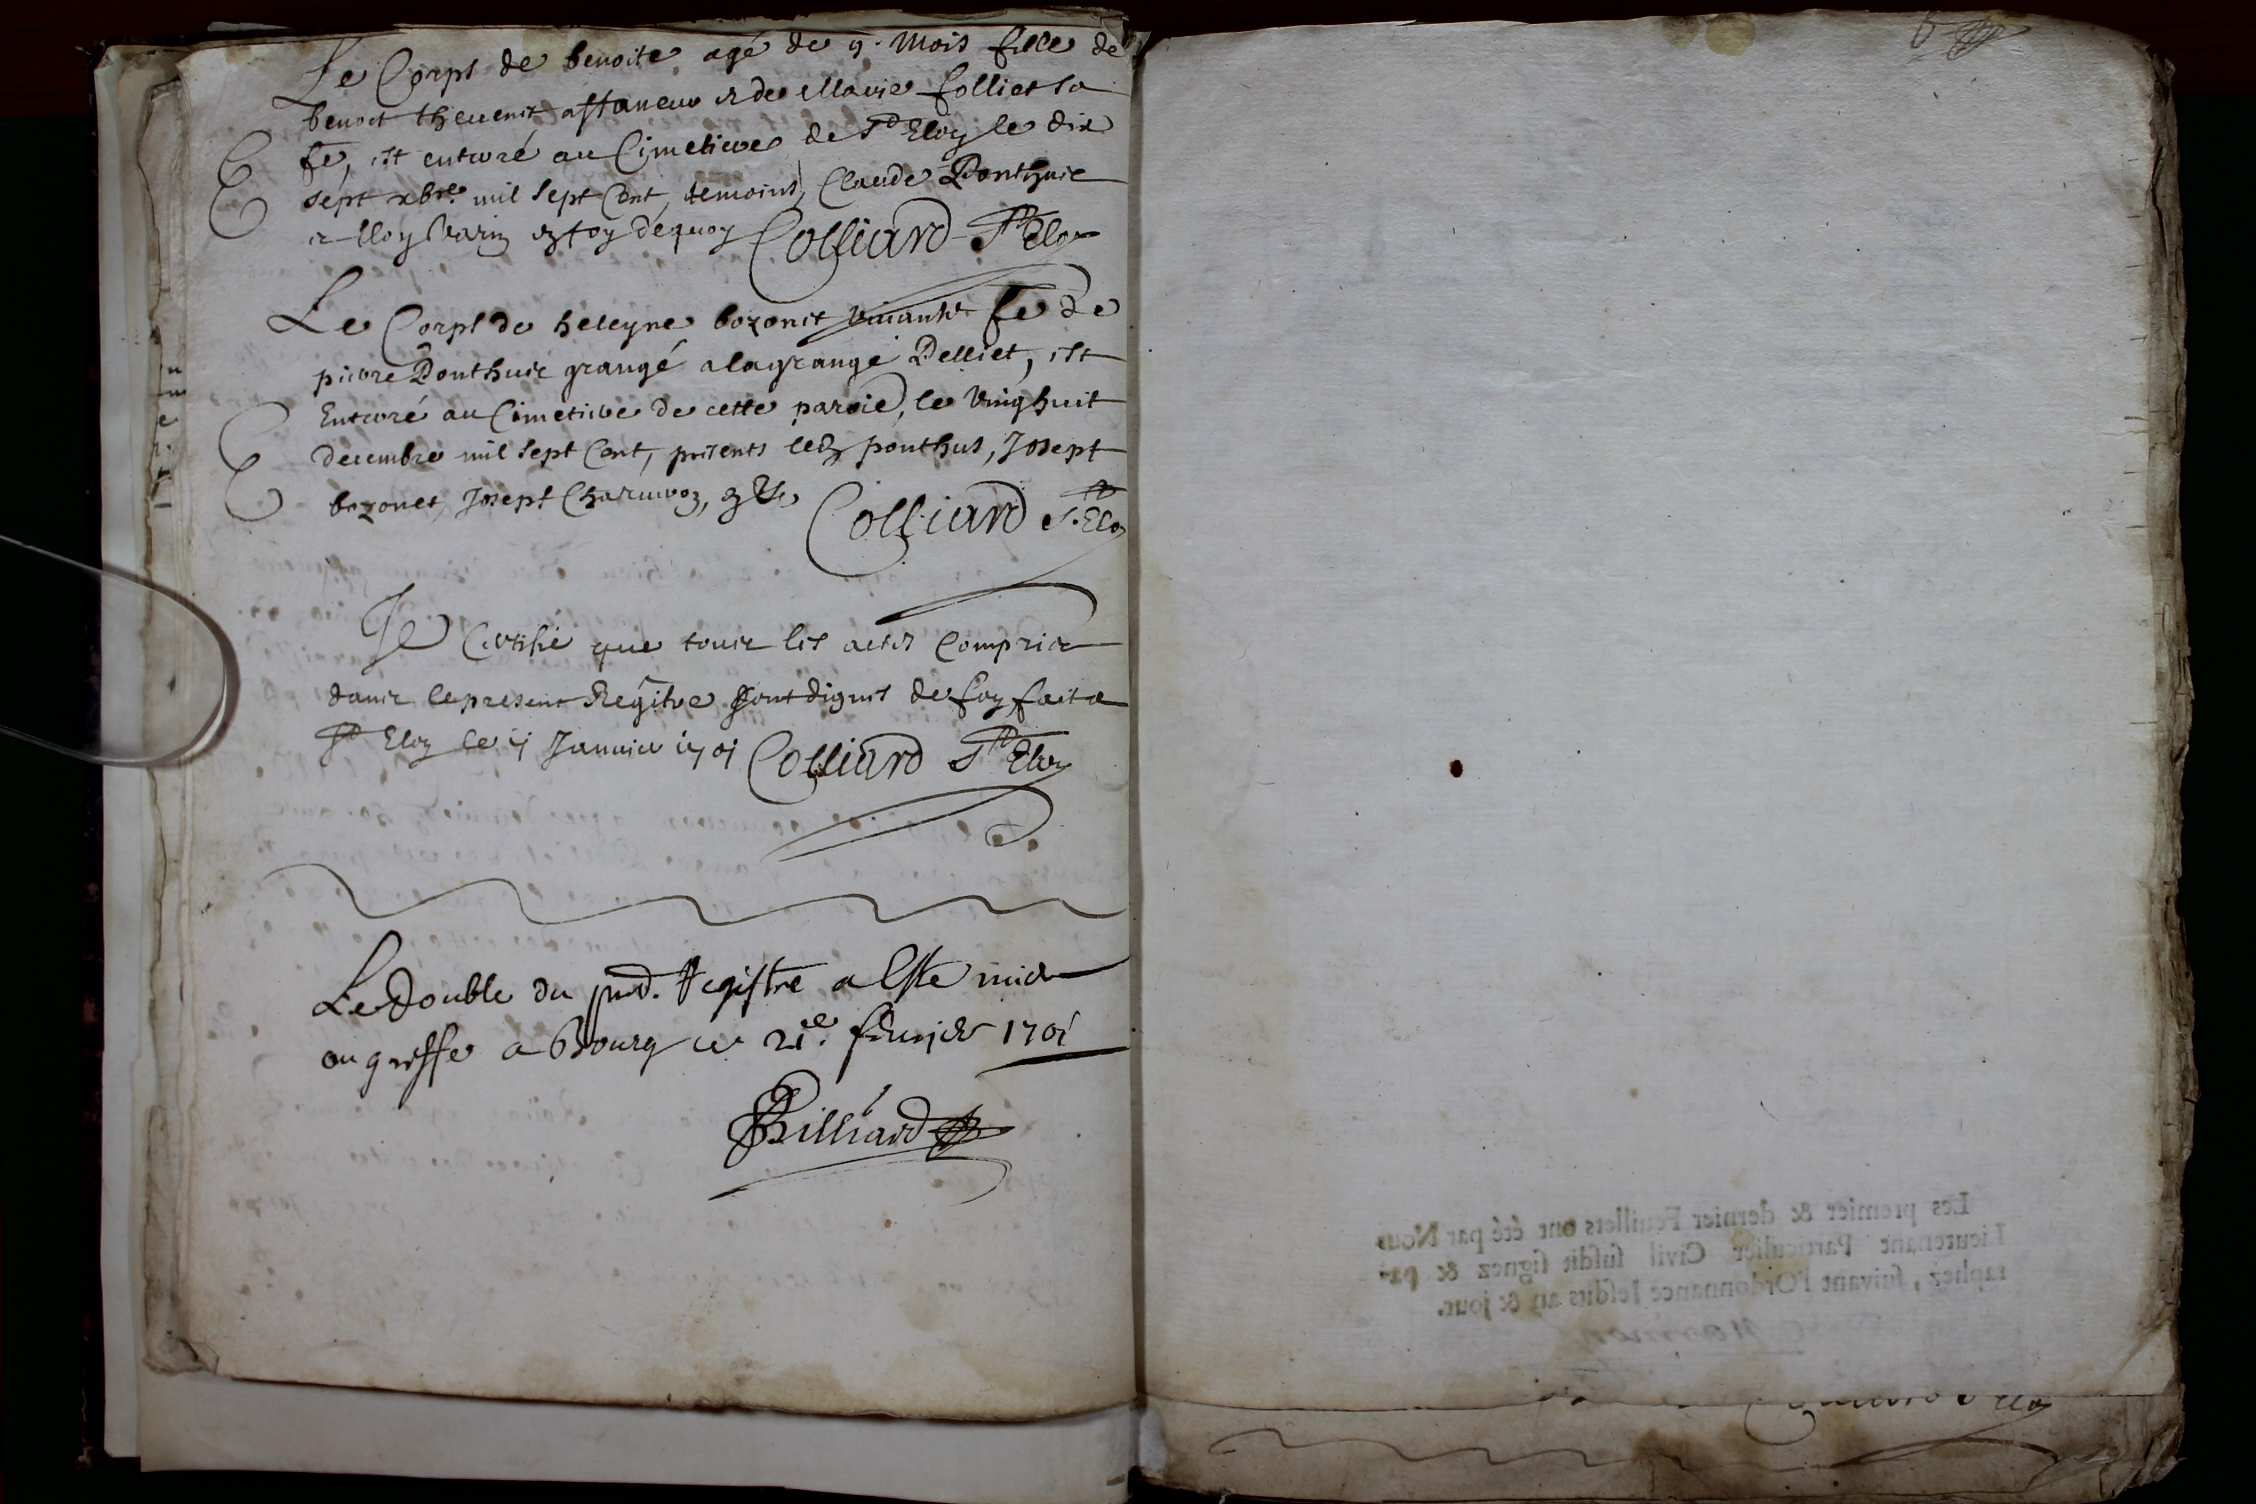 Le Corps de benoite agé de 9. Mois fille de
benoit thevenet affaneur et de Marie folliet sa
fe, est enterré au Cimetiere de St Eloy le dix
sept xbre. mil sept Cent, temoins, Claude Ponthuie
et Eloy Varin en foy dequoy Colliard St Eloy
Le Corps de heleyne bozonet vivante fe de
pierre Ponthuie grangé a la grange Delliet, est
Enterré au Cimetiere de cette paroie, le Vinghuit
decembre mil sept Cent, presents led ponthus, Josept
bozonet, Josept Charuvoz, Colliard St. Eloy
Je Certifie que touts les actes Compris
dans le present Regitre sont dignes de foy fait a
St Eloy le Janvier 1701 Colliard St Eloy
Le double du pnd. Registre a Este mis
au greffe a Bourg ce 21e. fevrier 1701
Billiard
Les premier & dernier Feuillets ont été par Nous
Lieutenant Particulier Civil susdit signez & pa-
raphez, suivant l'Ordonnance lesdits an & jour.